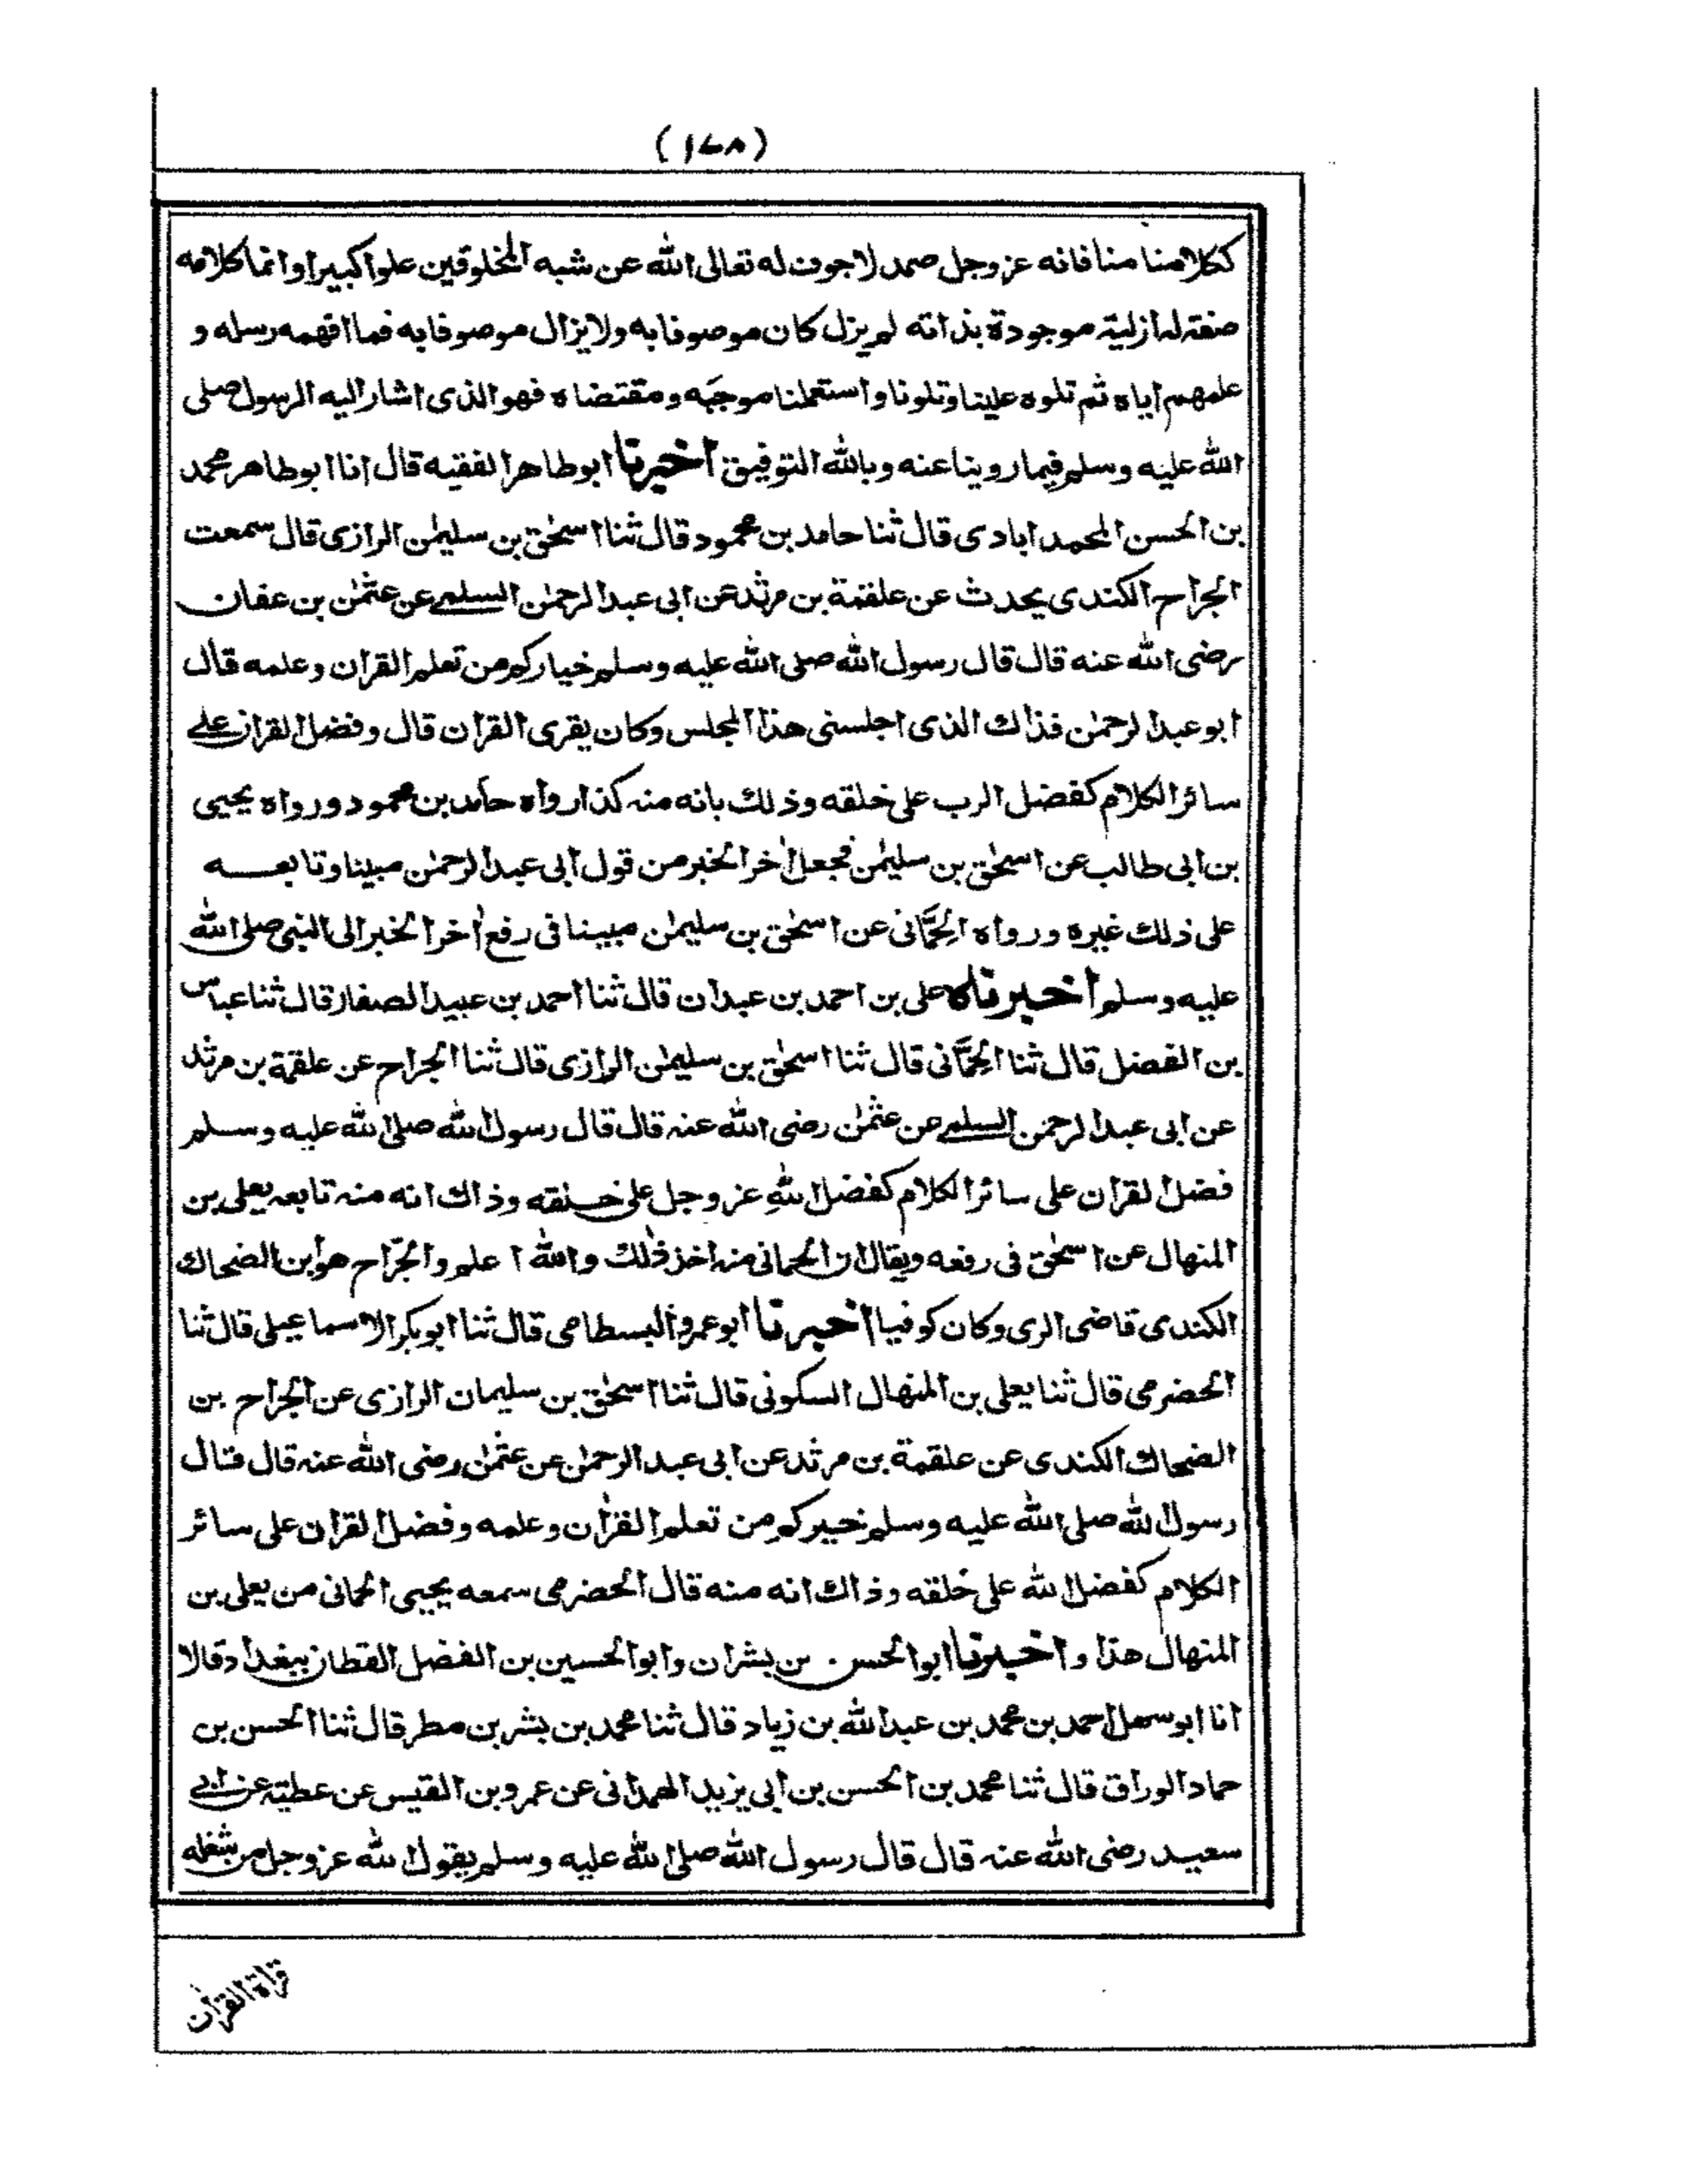 (١٧٨)
ككلامنا منا فانه عز وجل صمد لا جوف له تعالى الله عن شبه المخلوقين علوا كبيرا وانما كلامه
صفة له ازلية موجودة بذاته لم يزل كان موصوفا به ولا يزال موصوفا به فما افهمه رسله و
علمهم اياه ثم تلوه علينا وتلونا واستعملنا موجبه ومقتضاه فهو الذى اشار اليه الرسول صلى
الله عليه وسلم فيما روينا عنه وبالله التوفيق اخبرنا ابو طاهر الفقيه قال انا ابو طاهر محمد
بن الحسن المحمد ابادى قال ثنا حامد بن محمود قال ثنا اسحٰق بن سليمٰن الرازى قال سمعت
الجراح الكندى يحدث عن علقمة بن مرثد عن ابى عبد الرحمٰن السلمى عن عثمٰن بن عفان
رضى الله عنه قال قال رسول الله صلى الله عليه وسلم خياركم من تعلم القران وعلمه قال
ابو عبد الرحمٰن فذاك الذى اجلسنى هذا المجلس وكان يقرى القران قال وفضل القران على
سائر الكلام كفضل الرب على خلقه وذلك بانه منه كذا رواه حامد بن محمود ورواه يحيى
بن ابى طالب عن اسحٰق بن سليمٰن فجعل اٰخر الخبر من قول ابى عبد الرحمٰن مبينا وتابعه
على ذلك غيره ورواه الحِمَّانى عن اسحٰق بن سليمٰن مبينا فى رفع اٰخر الخبر الى النبى صلى الله
عليه وسلم اخبرناه على بن احمد بن عبدان قال ثنا احمد بن عبيد الصفار قال ثنا عباس
بن الفضل قال ثنا الحِمَّانى قال ثنا اسحٰق بن سليمٰن الرازى قال ثنا الجراح عن علقمة بن مرثد
عن ابى عبد الرحمٰن السلمى عن عثمٰن رضى الله عنه قال قال رسول الله صلى الله عليه وسلم
فضل القران على سائر الكلام كفضل اللهِ عز وجل على خلقه وذاك انه منه تابعه يعلى بن
المنهال عن اسحٰق فى رفعه ويقال ان الحمانى منه اخذ ذٰلك والله اعلم والجرّاح هو ابن الضحاك
الكندى قاضى الرى وكان كوفيا اخبرنا ابو عمرو البسطامى قال ثنا ابو بكر الاسماعيلى قال ثنا
الحضرمى قال ثنا يعلى بن المنهال السكونى قال ثنا اسحٰق بن سليمان الرازى عن الجراح بن
الضحاك الكندى عن علقمة بن مرثد عن ابى عبد الرحمٰن عن عثمٰن رضى الله عنه قال قال
رسول الله صلى الله عليه وسلم خيركم من تعلم القراٰن وعلمه وفضل القران على سائر
الكلام كفضل الله على خلقه وذاك انه منه قال الحضرمى سمعه يحيى الحمانى من يعلى بن
المنهال هذا واخبرنا ابو الحسين بن بشران وابو الحسين بن الفضل القطان ببغداد قالا
انا ابو سهل احمد بن محمد بن عبد الله بن زياد قال ثنا محمد بن بشر بن مطر قال ثنا الحسن بن
حماد الوراق قال ثنا محمد بن الحسن بن ابى يزيد الهمدانى عن عمرو بن القيس عن عطية عن ابى
سعيد رضى الله عنه قال قال رسول الله صلى الله عليه وسلم يقول الله عز وجل من شغله
قراة القراٰن